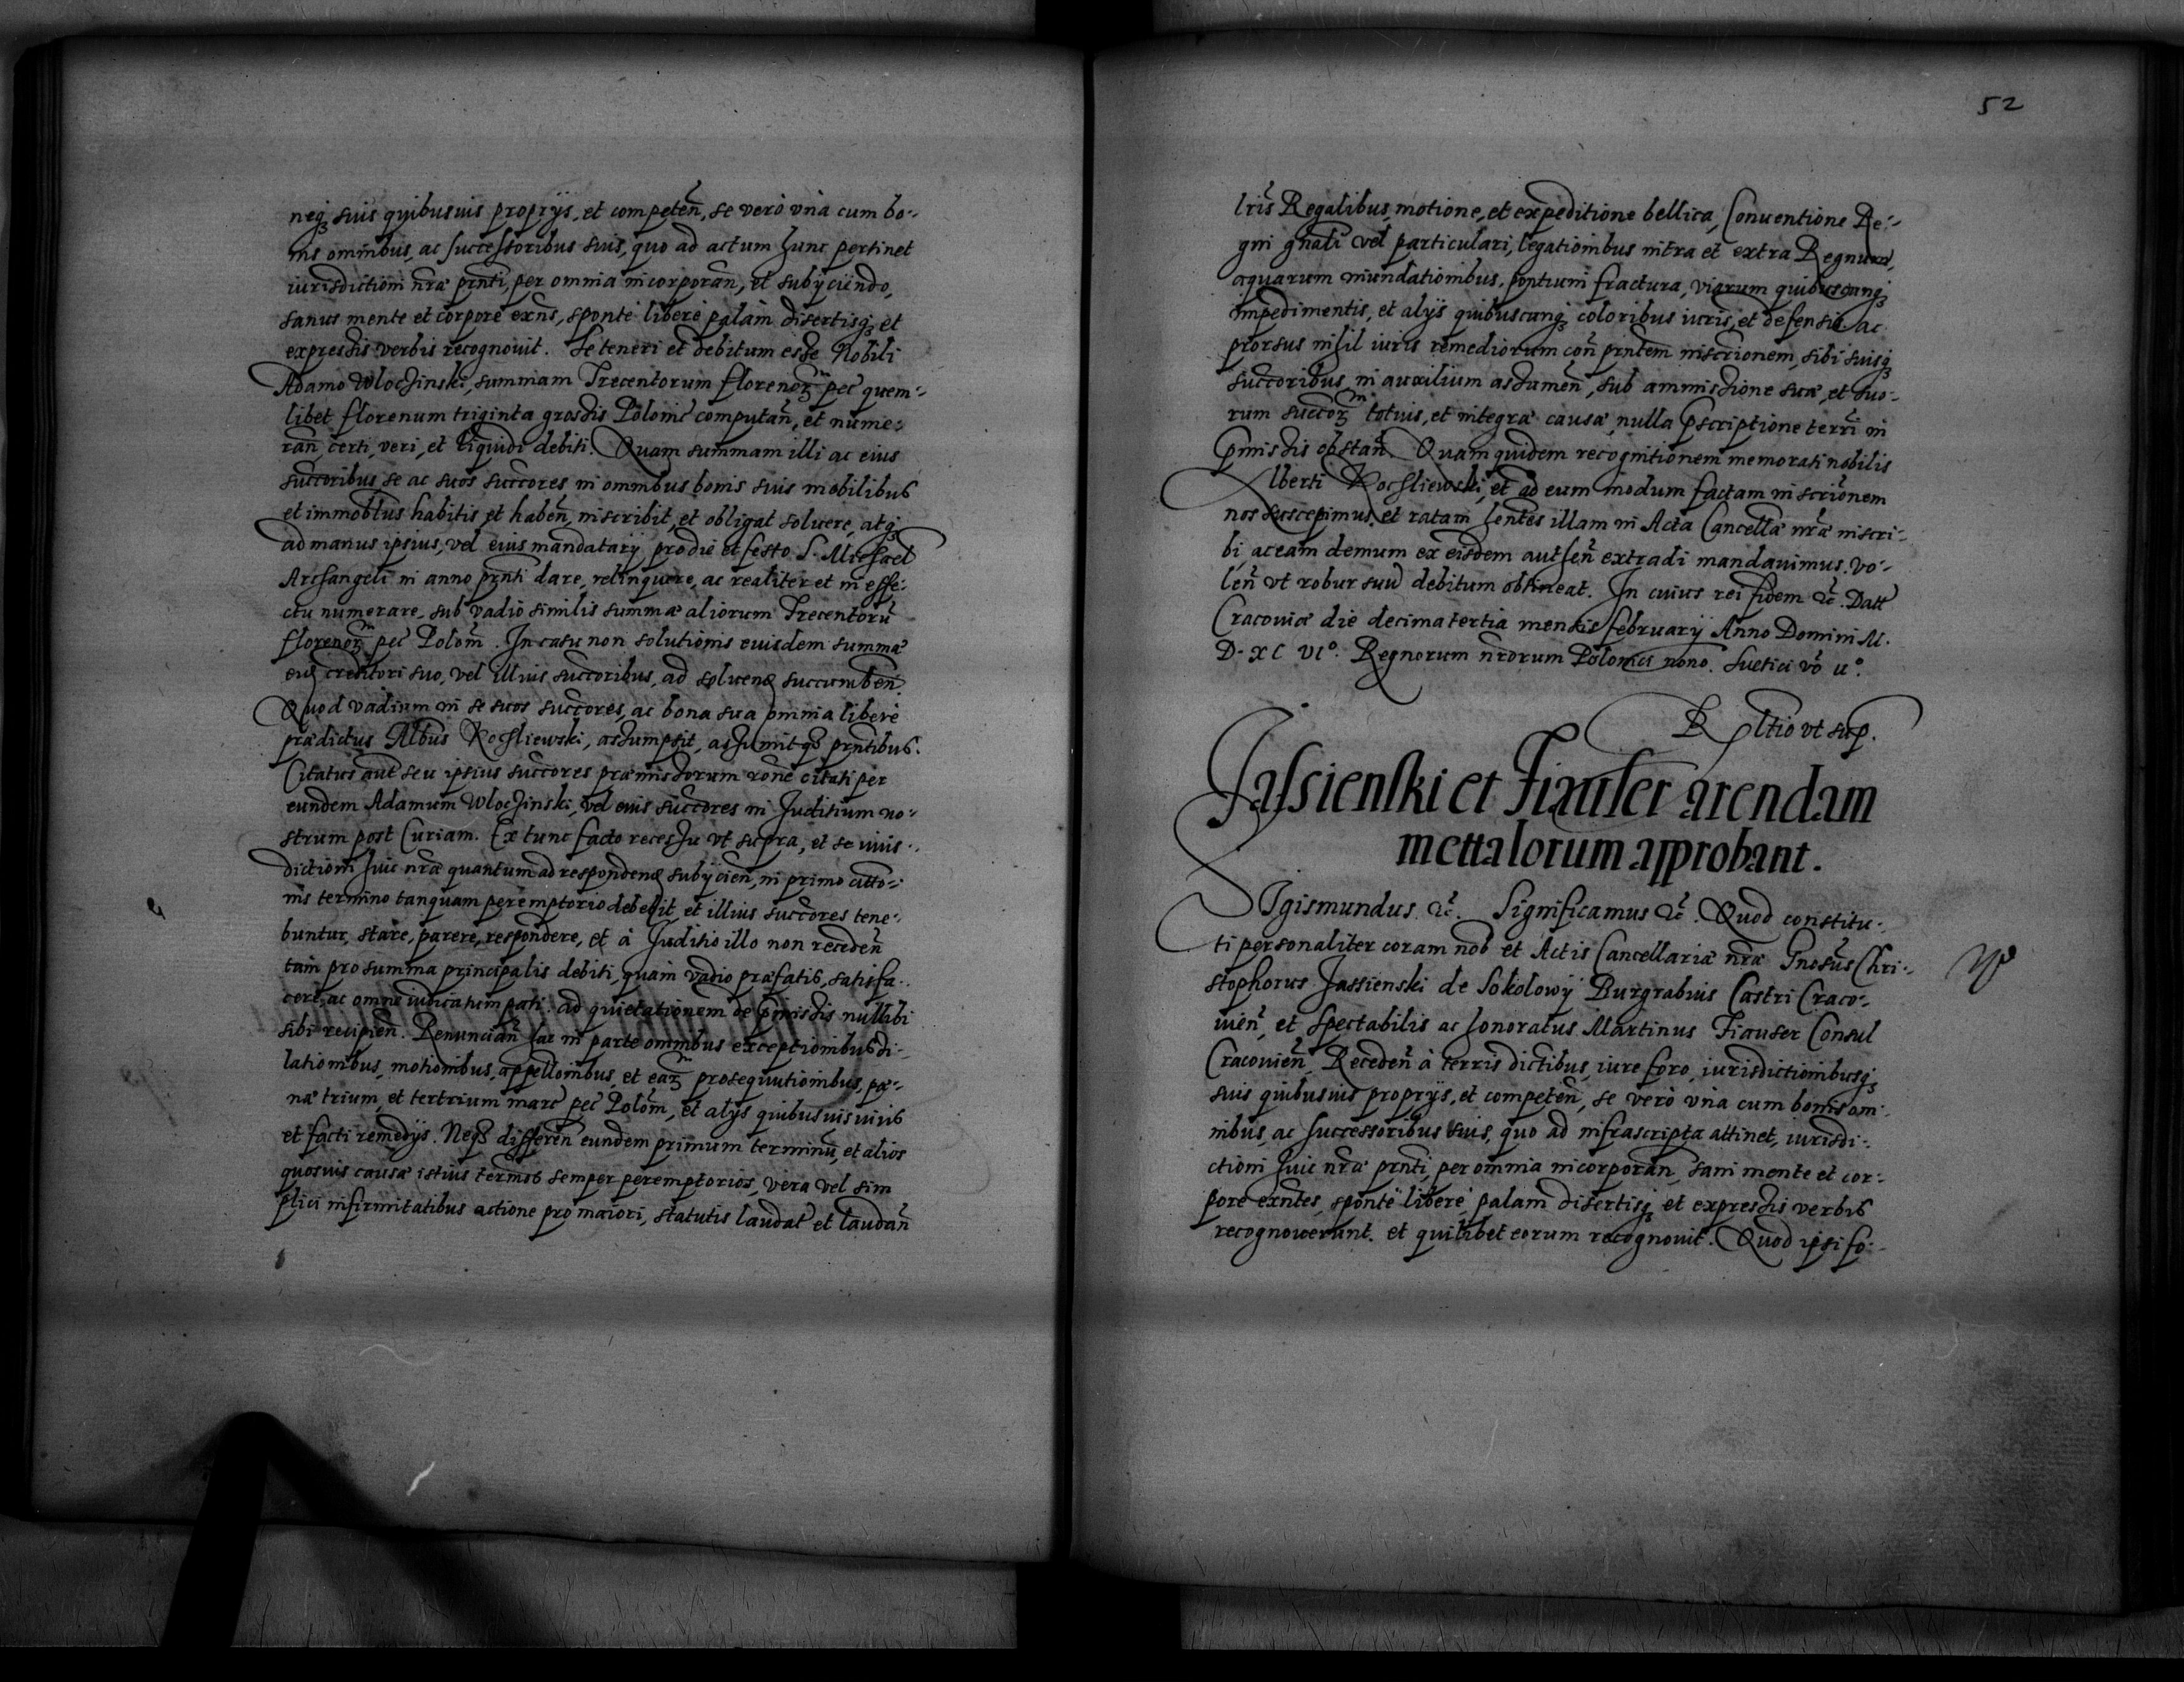 neq suis quibusuis proprijs, et competen̄, se verò vnà cum bo-
nis omnibus, ac successoribus suis, quo ad actum hunc pertinet
iurisdictioni nr̄æ prn̄ti, per omnia incorporan̄, et subijciendo,
sanus mente et corpore exn̄s, sponte liberè palàm disertisq et
expressis verbis recognouit. Se teneri et debitum esse Nobili
Adamo Wlochinski, summam Trecentorum florenor pec quem-
libet florenum triginta grossis Polonic computan̄, et nume-
ran̄, certi, veri, et liquidi debiti. Quam summam illi ac eius
succoribus se ac suos succores in omnibus bonis suis mobilibus
et immobl̄ibus habitis et haben̄, inscribit, et obligat soluere, atq
ad manus ipsius, vel eius mandatarij pro die et festo S. Michael
Archangeli in anno prn̄ti dare, relinquere, ac realiter et in effe-
ctu numerare, sub vadio similis summæ aliorum Trecentorū
florenor pec Polon̄. In casu non solutionis euisdem summæ
creditori suo, vel illius succoribus, ad soluend succumben̄.
Quod vadium in se suos succores, ac bona sua omnia liberè
prædictus Albus Kochliewski, assumpsit, assumitq prn̄tibus.
Citatus aut seu ipsius succores præmissorum rōne citati per
eundem Adamum Wlochinski, vel euis succores in Juditium no-
strum post Curiam. Ex tunc facto recessu vt supra, et se iuris-
dictioni huic nræ quantum ad respondend subijcien̄, in primo citto-
nis termino tanquam peremptorio debebit, et illius succores tene-
buntur, stare, parere, respondere, et à Juditio illo non receden̄
tam pro summa principalis debiti, quàm vadio præfatis, satisfa-
cere, ac omne iudicatum pati. ad quietationem de pmissis nullibi
sibi recipien̄. Renuncian̄ hac in parte omnibus exceptionibus di-
lationibus, motionibus, appellonibus, et ear prosequutionibus, pæ-
næ trium, et tertrium marc pec Polon̄, et alijs quibusuis iuris
et facti remedijs. Neq differen̄ eundem primum terminū, et alios
quosuis causæ istius termos semper peremptorios, vera vel sim
plici infirmitatibus actione pro maiori, statutis laudat et laudan̄
52
lris Regalibus, motione, et expeditione bellica, Conuentione Re-
gni gnāli vel particulari, legationibus intra et extra Regnum,
aquarum inundationibus, pontium fractura, viarum quibuscunq
impedimentis, et alijs quibuscunq coloribus iuris, et defensis. ac
prorsus nihil iuris remediorum con̄ prn̄tem inscrionem, sibi suisq
succoribus, in auxilium assumen̄, sub ammissione suæ, et suo-
rum succor totius, et integræ causæ, nulla pscriptione terrī in
pmissis obstan̄. Quam quidem recognitionem memorati nobilis
Alberti Kochliewski, et ad eum modum factam inscrionem
nos suscepimus, et ratam hentes illam in Acta Cancellæ nræ inscri-
bi, ac eam demum ex eisdem authen̄ extradi mandauimus. Vo-
len̄ vt robur suū debitum obtineat. In cuius rei fidem &c. Datt
Cracouiæ die decima tertia mensis february Anno Domini M.
D. XC VIº. Regnorum nrorum Poloniæ nono. Suetici vō uº.
Rltio vt sup.
Jassienski et Fiauser arendam
mettalorum approbant.
SIgismundus &c. Significamus &c. Quod constitu-
ti personaliter coram nob et Actis Cancellariæ nr̄æ Gnosus Chri-
stophorus Jassienski de Sokolowy Burgrabius Castri Craco-
uien̄, et Spectabilis ac honoratus Martinus Fiauser Consul
Cracouien̄, Receden̄ à terris dictibus, iure foro, iurisdictionibusq
suis quibusuis proprijs, et competen̄, se verò vnà cum bonis om-
nibus, ac successoribus suis, quo ad infrascripta attinet, iurisdi-
ctioni huic nr̄æ prn̄ti, per omnia incorporan̄, sani mente et cor-
pore exn̄tes, sponte liberè, palam disertisq et expressis verbis
recognouerunt. et quilibet eorum recognouit. Quod ipsi fo-